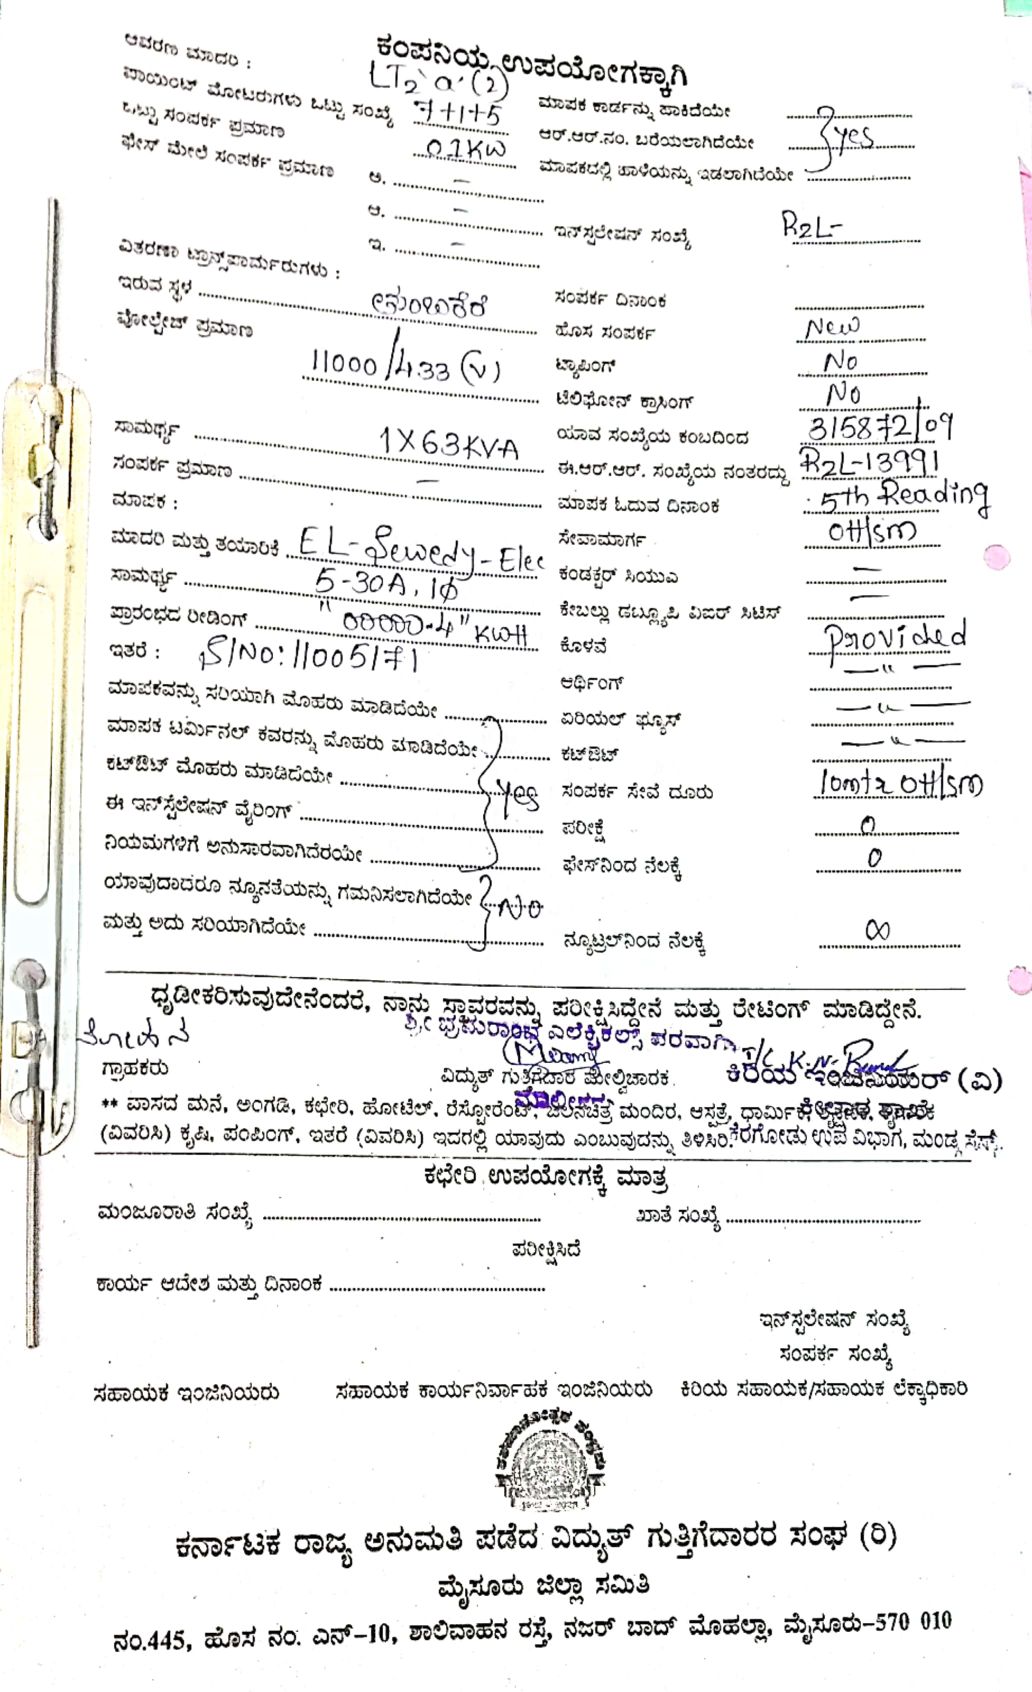 ಕಂಪನಿಯ ಉಪಯೋಗಕ್ಕಾಗಿ
ಆವರಣ ಮಾದರಿ : LT2 'a' (2)
ಪಾಯಿಂಟ್ ಮೋಟರುಗಳು ಒಟ್ಟು ಸಂಖ್ಯೆ 7+1+5 ಮಾಪಕ ಕಾರ್ಡನ್ನು ಹಾಕಿದೆಯೇ
ಒಟ್ಟು ಸಂಪರ್ಕ ಪ್ರಮಾಣ 0.1KW ಆರ್.ಆರ್.ನಂ. ಬರೆಯಲಾಗಿದೆಯೇ } yes
ಫೇಸ್ ಮೇಲೆ ಸಂಪರ್ಕ ಪ್ರಮಾಣ ಅ. – ಮಾಪಕದಲ್ಲಿ ಹಾಳೆಯನ್ನು ಇಡಲಾಗಿದೆಯೇ
ಆ. – ಇನ್‌ಸ್ಟಲೇಷನ್ ಸಂಖ್ಯೆ R2L-
ಇ. –
ವಿತರಣಾ ಟ್ರಾನ್ಸ್‌ಫಾರ್ಮರುಗಳು :
ಇರುವ ಸ್ಥಳ ಸಂಪರ್ಕ ದಿನಾಂಕ
ವೋಲ್ಟೇಜ್ ಪ್ರಮಾಣ ಹೊಸ ಸಂಪರ್ಕ New
11000/433 (V) ಟ್ಯಾಪಿಂಗ್ No
ಟೆಲಿಫೋನ್ ಕ್ರಾಸಿಂಗ್ No
ಸಾಮರ್ಥ್ಯ 1X63KVA ಯಾವ ಸಂಖ್ಯೆಯ ಕಂಬದಿಂದ 315872/09
ಸಂಪರ್ಕ ಪ್ರಮಾಣ – ಈ.ಆರ್.ಆರ್. ಸಂಖ್ಯೆಯ ನಂತರದ್ದು R2L-13991
ಮಾಪಕ : ಮಾಪಕ ಓದುವ ದಿನಾಂಕ 5th Reading
ಮಾದರಿ ಮತ್ತು ತಯಾರಿಕೆ EL-Sewedy-Elec ಸೇವಾಮಾರ್ಗ OH/sm
ಸಾಮರ್ಥ್ಯ 5-30A, 1ϕ ಕಂಡಕ್ಟರ್ ಸಿಯುಎ –
ಪ್ರಾರಂಭದ ರೀಡಿಂಗ್ "00000.4" KWH ಕೇಬಲ್ಲು ಡಬ್ಲ್ಯೂಪಿ ವಿಐರ್ ಸಿಟಿಸ್ –
ಇತರೆ : S/No: 11005171 ಕೊಳವೆ Provided
ಆರ್ಥಿಂಗ್ —"—
ಮಾಪಕವನ್ನು ಸರಿಯಾಗಿ ಮೊಹರು ಮಾಡಿದೆಯೇ ಏರಿಯಲ್ ಫ್ಯೂಸ್ —"—
ಮಾಪಕ ಟರ್ಮಿನಲ್ ಕವರನ್ನು ಮೊಹರು ಮಾಡಿದೆಯೇ ಕಟ್‌ಔಟ್ —"—
ಕಟ್‌ಔಟ್ ಮೊಹರು ಮಾಡಿದೆಯೇ } yes ಸಂಪರ್ಕ ಸೇವೆ ದೂರು 10mtr OH/sm
ಈ ಇನ್‌ಸ್ಟೆಲೇಷನ್ ವೈರಿಂಗ್ ಪರೀಕ್ಷೆ 0
ನಿಯಮಗಳಿಗೆ ಅನುಸಾರವಾಗಿದೆರಯೇ ಫೇಸ್‌ನಿಂದ ನೆಲಕ್ಕೆ 0
ಯಾವುದಾದರೂ ನ್ಯೂನತೆಯನ್ನು ಗಮನಿಸಲಾಗಿದೆಯೇ } No
ಮತ್ತು ಅದು ಸರಿಯಾಗಿದೆಯೇ ನ್ಯೂಟ್ರಲ್‌ನಿಂದ ನೆಲಕ್ಕೆ ∞
ಧೃಡೀಕರಿಸುವುದೇನೆಂದರೆ, ನಾನು ಸ್ಥಾವರವನ್ನು ಪರೀಕ್ಷಿಸಿದ್ದೇನೆ ಮತ್ತು ರೇಟಿಂಗ್ ಮಾಡಿದ್ದೇನೆ.
ಶ್ರೀ ಭ್ರಮರಾಂಭ ಎಲೆಕ್ಟ್ರಿಕಲ್ಸ್ ಪರವಾಗಿ
ಗ್ರಾಹಕರು ವಿದ್ಯುತ್ ಗುತ್ತಿಗೆದಾರ ಮೇಲ್ವಿಚಾರಕ. ಕಿರಿಯ ಇಂಜಿನಿಯರ್ (ವಿ)
** ವಾಸದ ಮನೆ, ಅಂಗಡಿ, ಕಛೇರಿ, ಹೋಟೆಲ್, ರೆಸ್ಟೋರೆಂಟ್, ಚಲನಚಿತ್ರ ಮಂದಿರ, ಆಸ್ಪತ್ರೆ, ಧಾರ್ಮಿಕ
(ವಿವರಿಸಿ) ಕೃಷಿ, ಪಂಪಿಂಗ್, ಇತರೆ (ವಿವರಿಸಿ) ಇದಗಲ್ಲಿ ಯಾವುದು ಎಂಬುವುದನ್ನು ತಿಳಿಸಿರಿ. ಕೆರಗೋಡು ಉಪ ವಿಭಾಗ, ಮಂಡ್ಯ
ಕಛೇರಿ ಉಪಯೋಗಕ್ಕೆ ಮಾತ್ರ
ಮಂಜೂರಾತಿ ಸಂಖ್ಯೆ ಖಾತೆ ಸಂಖ್ಯೆ
ಪರೀಕ್ಷಿಸಿದೆ
ಕಾರ್ಯ ಆದೇಶ ಮತ್ತು ದಿನಾಂಕ
ಇನ್‌ಸ್ಟಲೇಷನ್ ಸಂಖ್ಯೆ
ಸಂಪರ್ಕ ಸಂಖ್ಯೆ
ಸಹಾಯಕ ಇಂಜಿನಿಯರು ಸಹಾಯಕ ಕಾರ್ಯನಿರ್ವಾಹಕ ಇಂಜಿನಿಯರು ಕಿರಿಯ ಸಹಾಯಕ/ಸಹಾಯಕ ಲೆಕ್ಕಾಧಿಕಾರಿ
ಕರ್ನಾಟಕ ರಾಜ್ಯ ಅನುಮತಿ ಪಡೆದ ವಿದ್ಯುತ್ ಗುತ್ತಿಗೆದಾರರ ಸಂಘ (ರಿ)
ಮೈಸೂರು ಜಿಲ್ಲಾ ಸಮಿತಿ
ನಂ.445, ಹೊಸ ನಂ. ಎನ್-10, ಶಾಲಿವಾಹನ ರಸ್ತೆ, ನಜರ್ ಬಾದ್ ಮೊಹಲ್ಲಾ, ಮೈಸೂರು-570 010